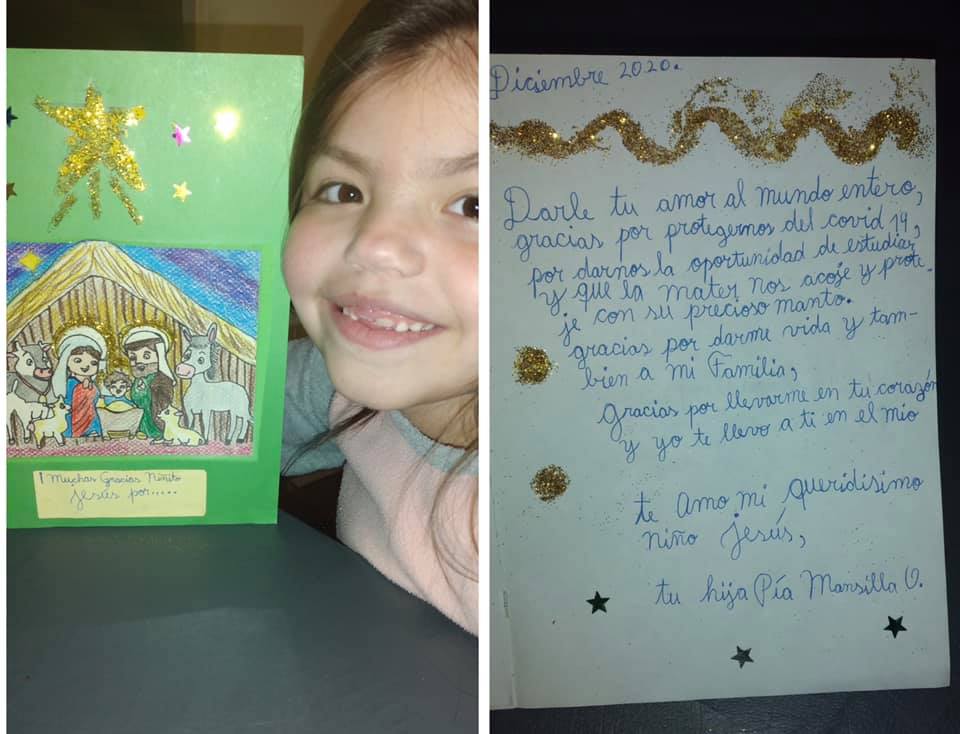 ¡Muchas Gracias Niñito
Jesús por.....
Diciembre 2020.
Darle tu amor al mundo entero,
gracias por protegernos del covid 19,
por darnos la oportunidad de estudiar
y que la mater nos acoje y prote-
je con su precioso manto.
gracias por darme vida y tam-
bien a mi Familia,
gracias por llevarme en tu corazón
y yo te llevo a ti en el mio
te Amo mi queridisimo
niño Jesús,
tu hija Pía Mansilla O.